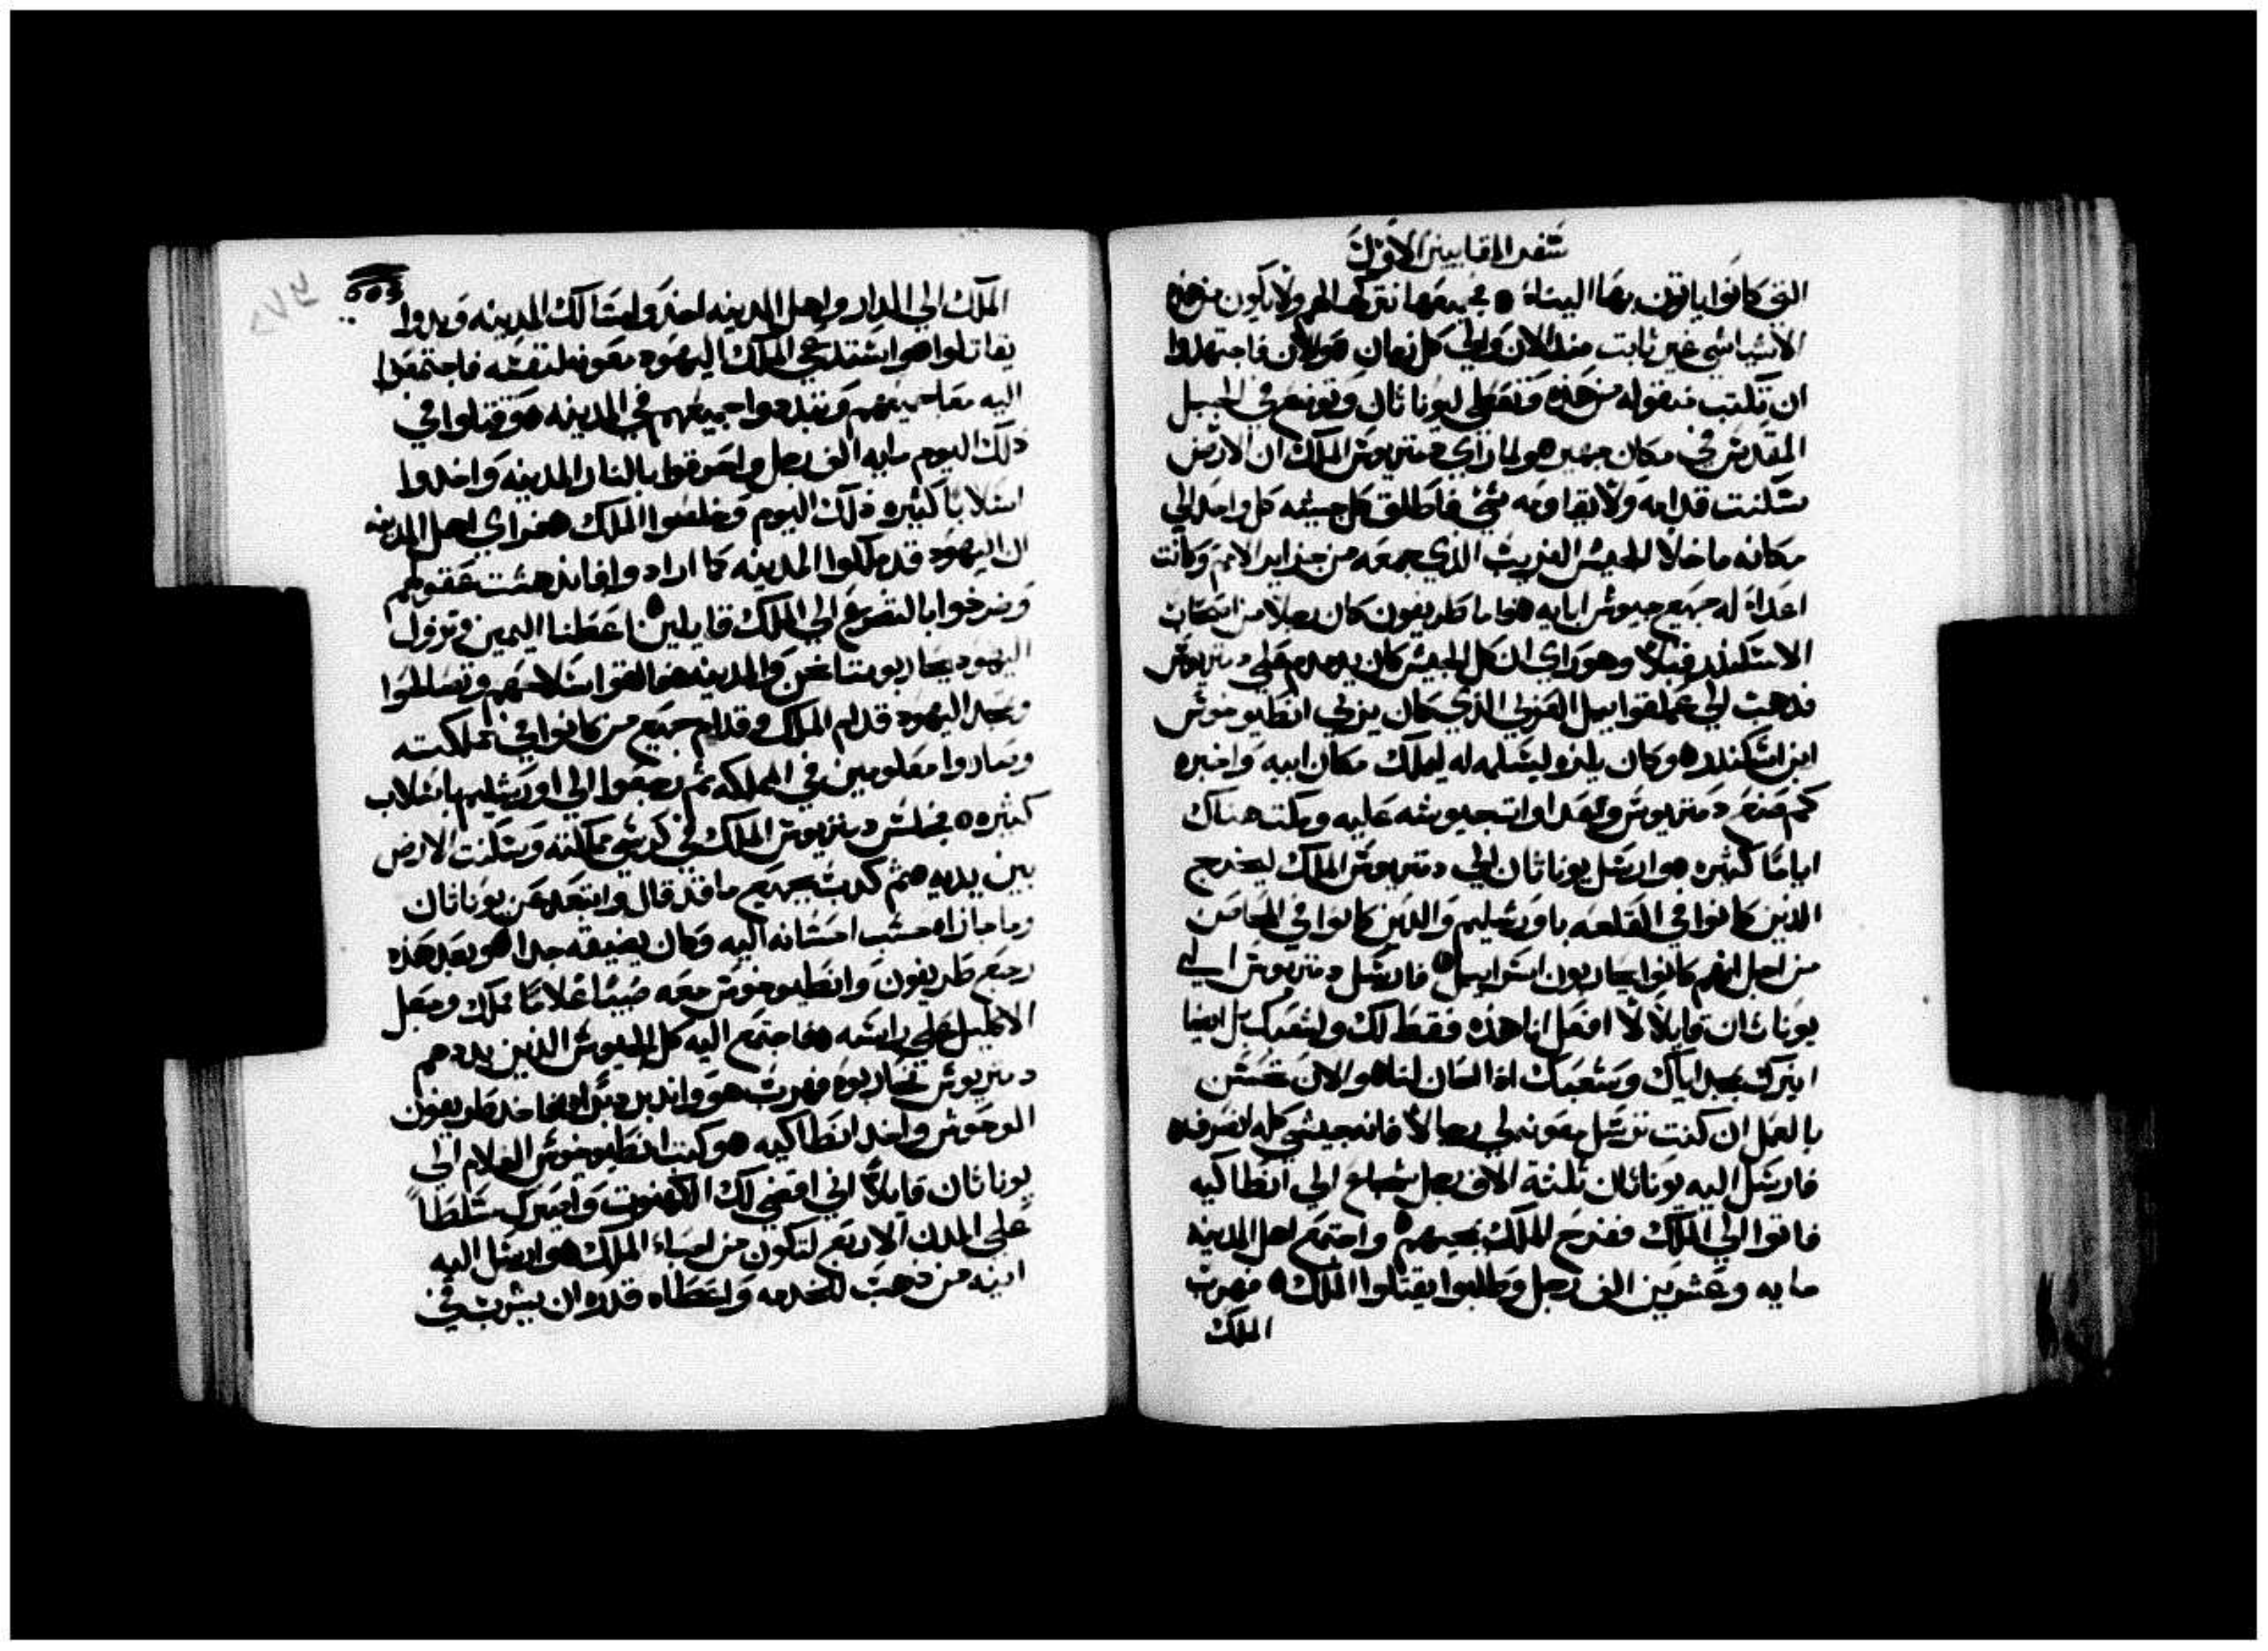 سفر المقابيين الاول
التي كانوا ياتون بها الينا ٥ جميعها نتركها لهم ولا يكون من هذه
الاشيا شي غير ثابت منذ الان والي كل زمان ٥ والان فاجتهدوا
ان تكتب نسخه من هذه وتعطي ليوناثان وتوضع في الجبل
المقدس في مكان جهير ٥ ولما راي دمتريوس الملك ان الارض
سكنت قدامه ولا يقاومه شي فاطلق كل جيشه كل واحد الي
مكانه ما خلا الجيش الغريب الذي جمعه من جزاير الامم وكانت
اعداء له جميع جيوش ابايه ٥ فاما طريفون كان رجلا من اصحاب
الاسكندر قبلا وهو راي ان كل الجيش كان يدمدم علي دمتريوس
فذهب الي عملقواييل العربي الذي كان يربي انطيوخوش
ابن اسكندر ٥ وكان يلزه ليسلمه له ليملك مكان ابيه واخبره
كم صنع دمتريوس وبعداوات جيوشه عليه ومكث هناك
اياما كثيره ٥ وارسل يوناثان الي دمتريوس الملك ليخرج
الذين كانوا في القلعه باورشليم والذين كانوا في المحاصن
من اجل انهم كانوا يحاربون اسراييل ٥ فارسل دمتريوس الي
يوناثان قايلا لا افعل انا هذه فقط لك ولشعبك بل ايضا
ابترك بمجد اياك وشعبك اذا الحان لنا ٥ والان تحسن
بالعمل ان كنت ترسل بمعونه لي رجالا فانه جيشي كله انصرف ٥
فارسل اليه يوناثان ثلثة الاف رجل شجاع الي انطاكيه
فاتوا الي الملك ففرح الملك بمجيهم ٥ واجتمع اهل المدينه
مايه وعشرين الف رجل وطلبوا يقتلوا الملك ٥ فهرب
الملك
الملك الي الدار واهل المدينه اخذوا مسالك المدينه وبدوا
يقاتلوا ٥ واستدعي الملك اليهود بمعونه لنفسه فاجتمعوا
اليه معا جميعهم وتبددوا جميعهم في المدينه ٥ وقتلوا في
ذلك اليوم مايه الف رجل واحرقوا بالنار المدينه واخدوا
اسلابا كثيره ذلك اليوم وخلصوا الملك ٥ فراي اهل المدينه
ان اليهود قد ملكوا المدينه كما ارادوا فاندهشت عقولهم
وصرخوا بالتضرع الي الملك قايلين ٥ اعطنا اليمين وتزول
اليهود يحاربوننا نحن والمدينه ٥ فالقوا سلاحهم وتصالحوا
ومجد اليهود قدام الملك وقدام جميع من كانوا في مملكته
وصاروا معلومين في المملكه ثم رجعوا الي اورشليم باسلاب
كثيره ٥ فجلس دمتريوس الملك في كرسي مملكته وسكنت الارض
بين يديه ٥ ثم كدب بجميع ما قد قال وابتعد عن يوناثان
وما جازاه حسب احسانه اليه وكان يضيقه جدا ٥ وبعد هذه
رجع طريفون وانطيوخوش معه صبيا غلاما ملك وجعل
الاكليل علي راسه ٥ فاجتمع اليه كل الجيوش الذين بددهم
دمتريوس تحاربوه فهرب هو واندبر دبرا ٥ فاخد طريفون
الوحوش واخد انطاكيه ٥ وكتب انطيوخوش الغلام الي
يوناثان قايلا اني اقضي لك الكهنوت واصيرك سلطا
علي المدن الاربع لتكون من احباء الملك ٥ وارسل اليه
انيه من ذهب للخدمه واعطاه قدره ان يشرب في